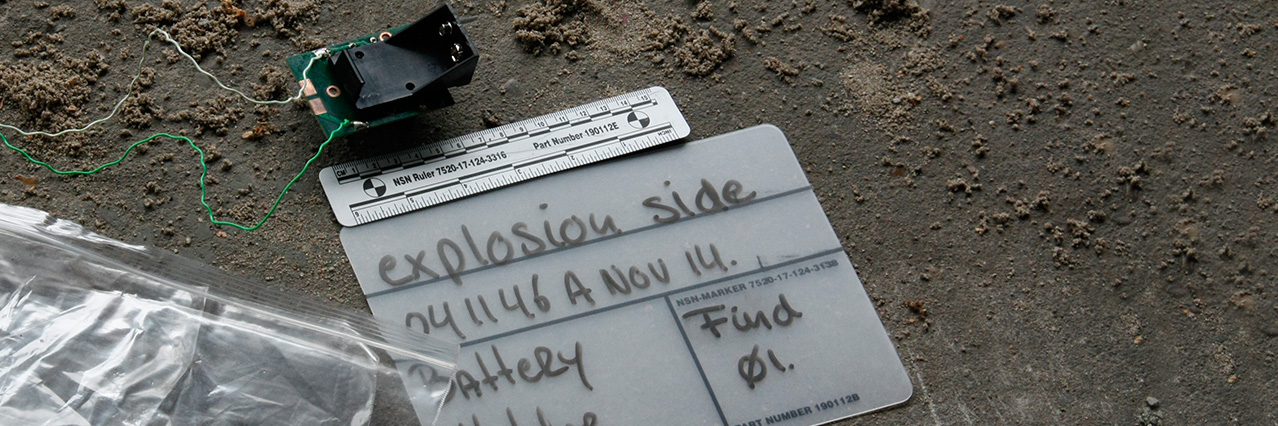 CM
NSN Ruler 7520-17-124-3316
Part Number 190112E
INCH
explosion side
041146 A Nov 14.
NSN-MARKER 7520-17-124-3138
Find
Ø1.
Battery
PART NUMBER 190112B